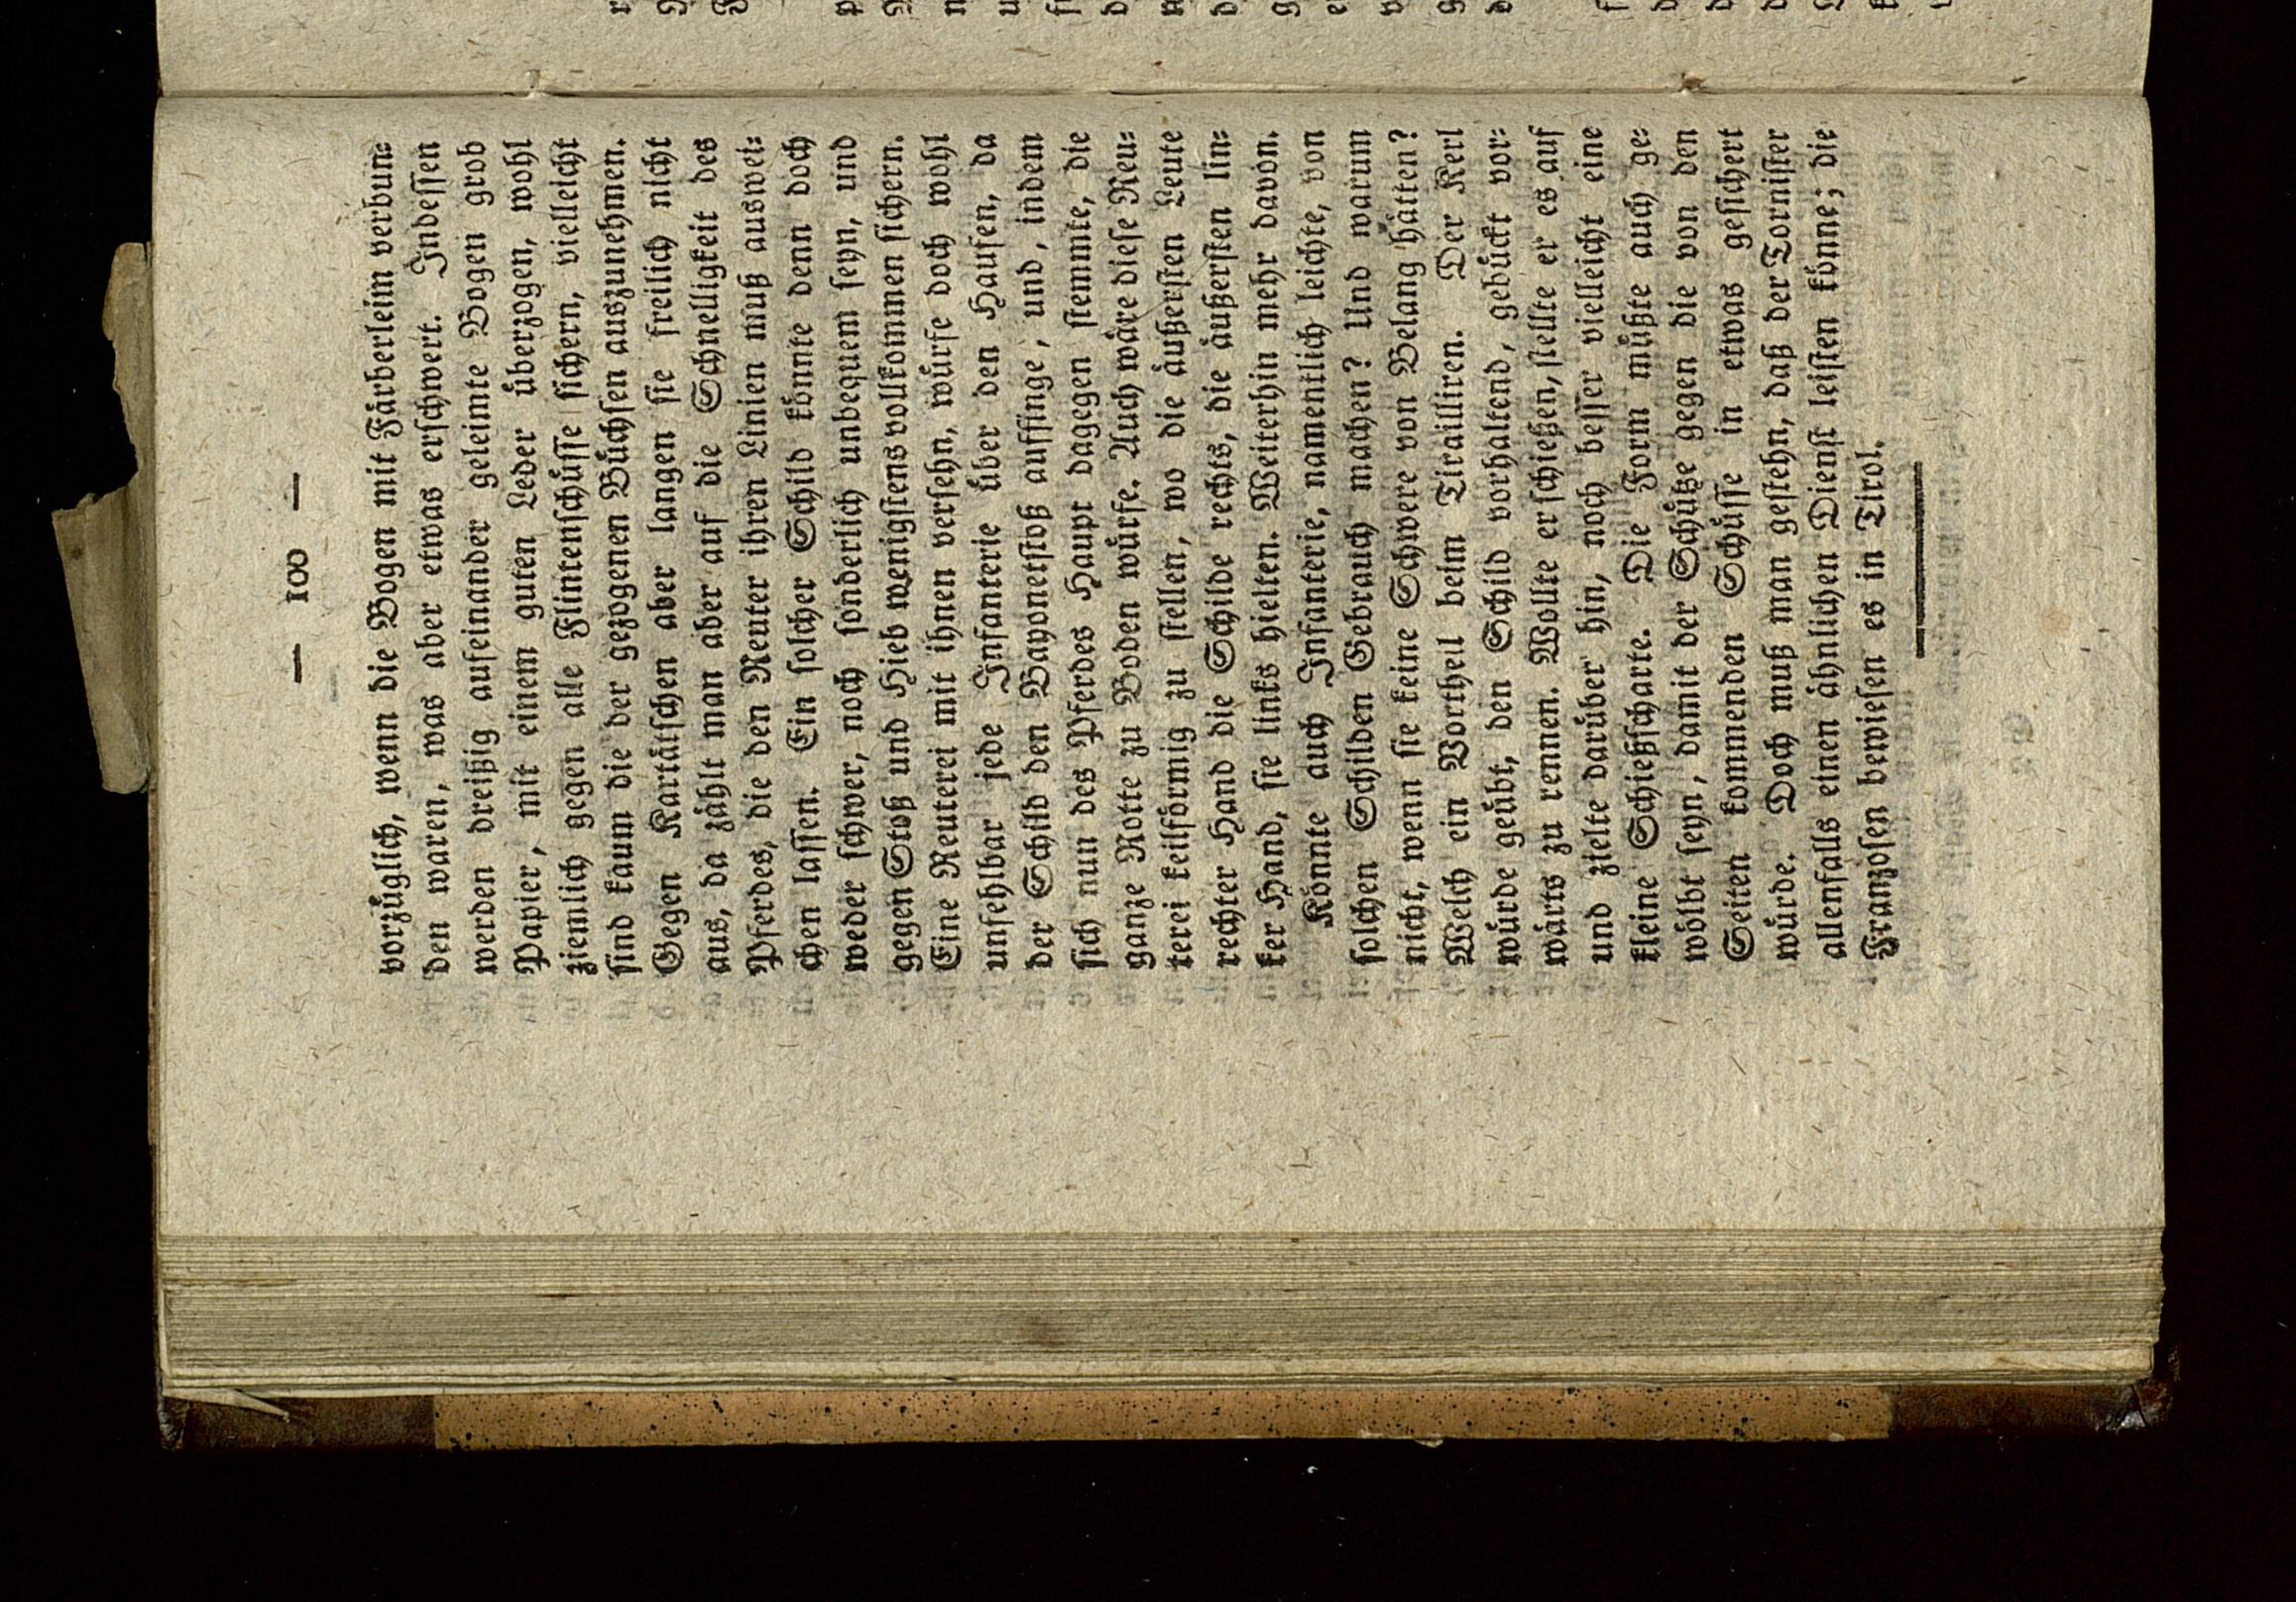 — 100 —
vorzüglich, wenn die Bogen mit Färberleim verbun⸗
den waren, was aber etwas erschwert. Indessen
werden dreißig aufeinander geleimte Bogen grob
Papier, mit einem guten Leder überzogen, wohl
ziemlich gegen alle Flintenschüsse sichern, vielleicht
sind kaum die der gezogenen Büchsen auszunehmen.
Gegen Kartätschen aber langen sie freilich nicht
aus, da zählt man aber auf die Schnelligkeit des
Pferdes, die den Reuter ihren Linien muß auswei⸗
chen lassen. Ein solcher Schild könnte denn doch
weder schwer, noch sonderlich unbequem seyn, und
gegen Stoß und Hieb wenigstens vollkommen sichern.
Eine Reuterei mit ihnen versehn, würfe doch wohl
unfehlbar jede Infanterie über den Haufen, da
der Schild den Bayonetstoß auffinge, und, indem
sich nun des Pferdes Haupt dagegen stemmte, die
ganze Rotte zu Boden würfe. Auch wäre diese Reu⸗
terei keilförmig zu stellen, wo die äußersten Leute
rechter Hand die Schilde rechts, die äußersten lin⸗
ker Hand, sie links hielten. Weiterhin mehr davon.
Könnte auch Infanterie, namentlich leichte, von
solchen Schilden Gebrauch machen? Und warum
nicht, wenn sie keine Schwere von Belang hätten?
Welch ein Vortheil beim Tirailliren. Der Kerl
würde geübt, den Schild vorhaltend, gebückt vor⸗
wärts zu rennen. Wollte er schießen, stellte er es auf
und zielte darüber hin, noch besser vielleicht eine
kleine Schießscharte. Die Form müßte auch ge⸗
wölbt seyn, damit der Schütze gegen die von den
Seiten kommenden Schüsse in etwas gesichert
würde. Doch muß man gestehn, daß der Tornister
allenfalls einen ähnlichen Dienst leisten könne; die
Franzosen bewiesen es in Tirol.